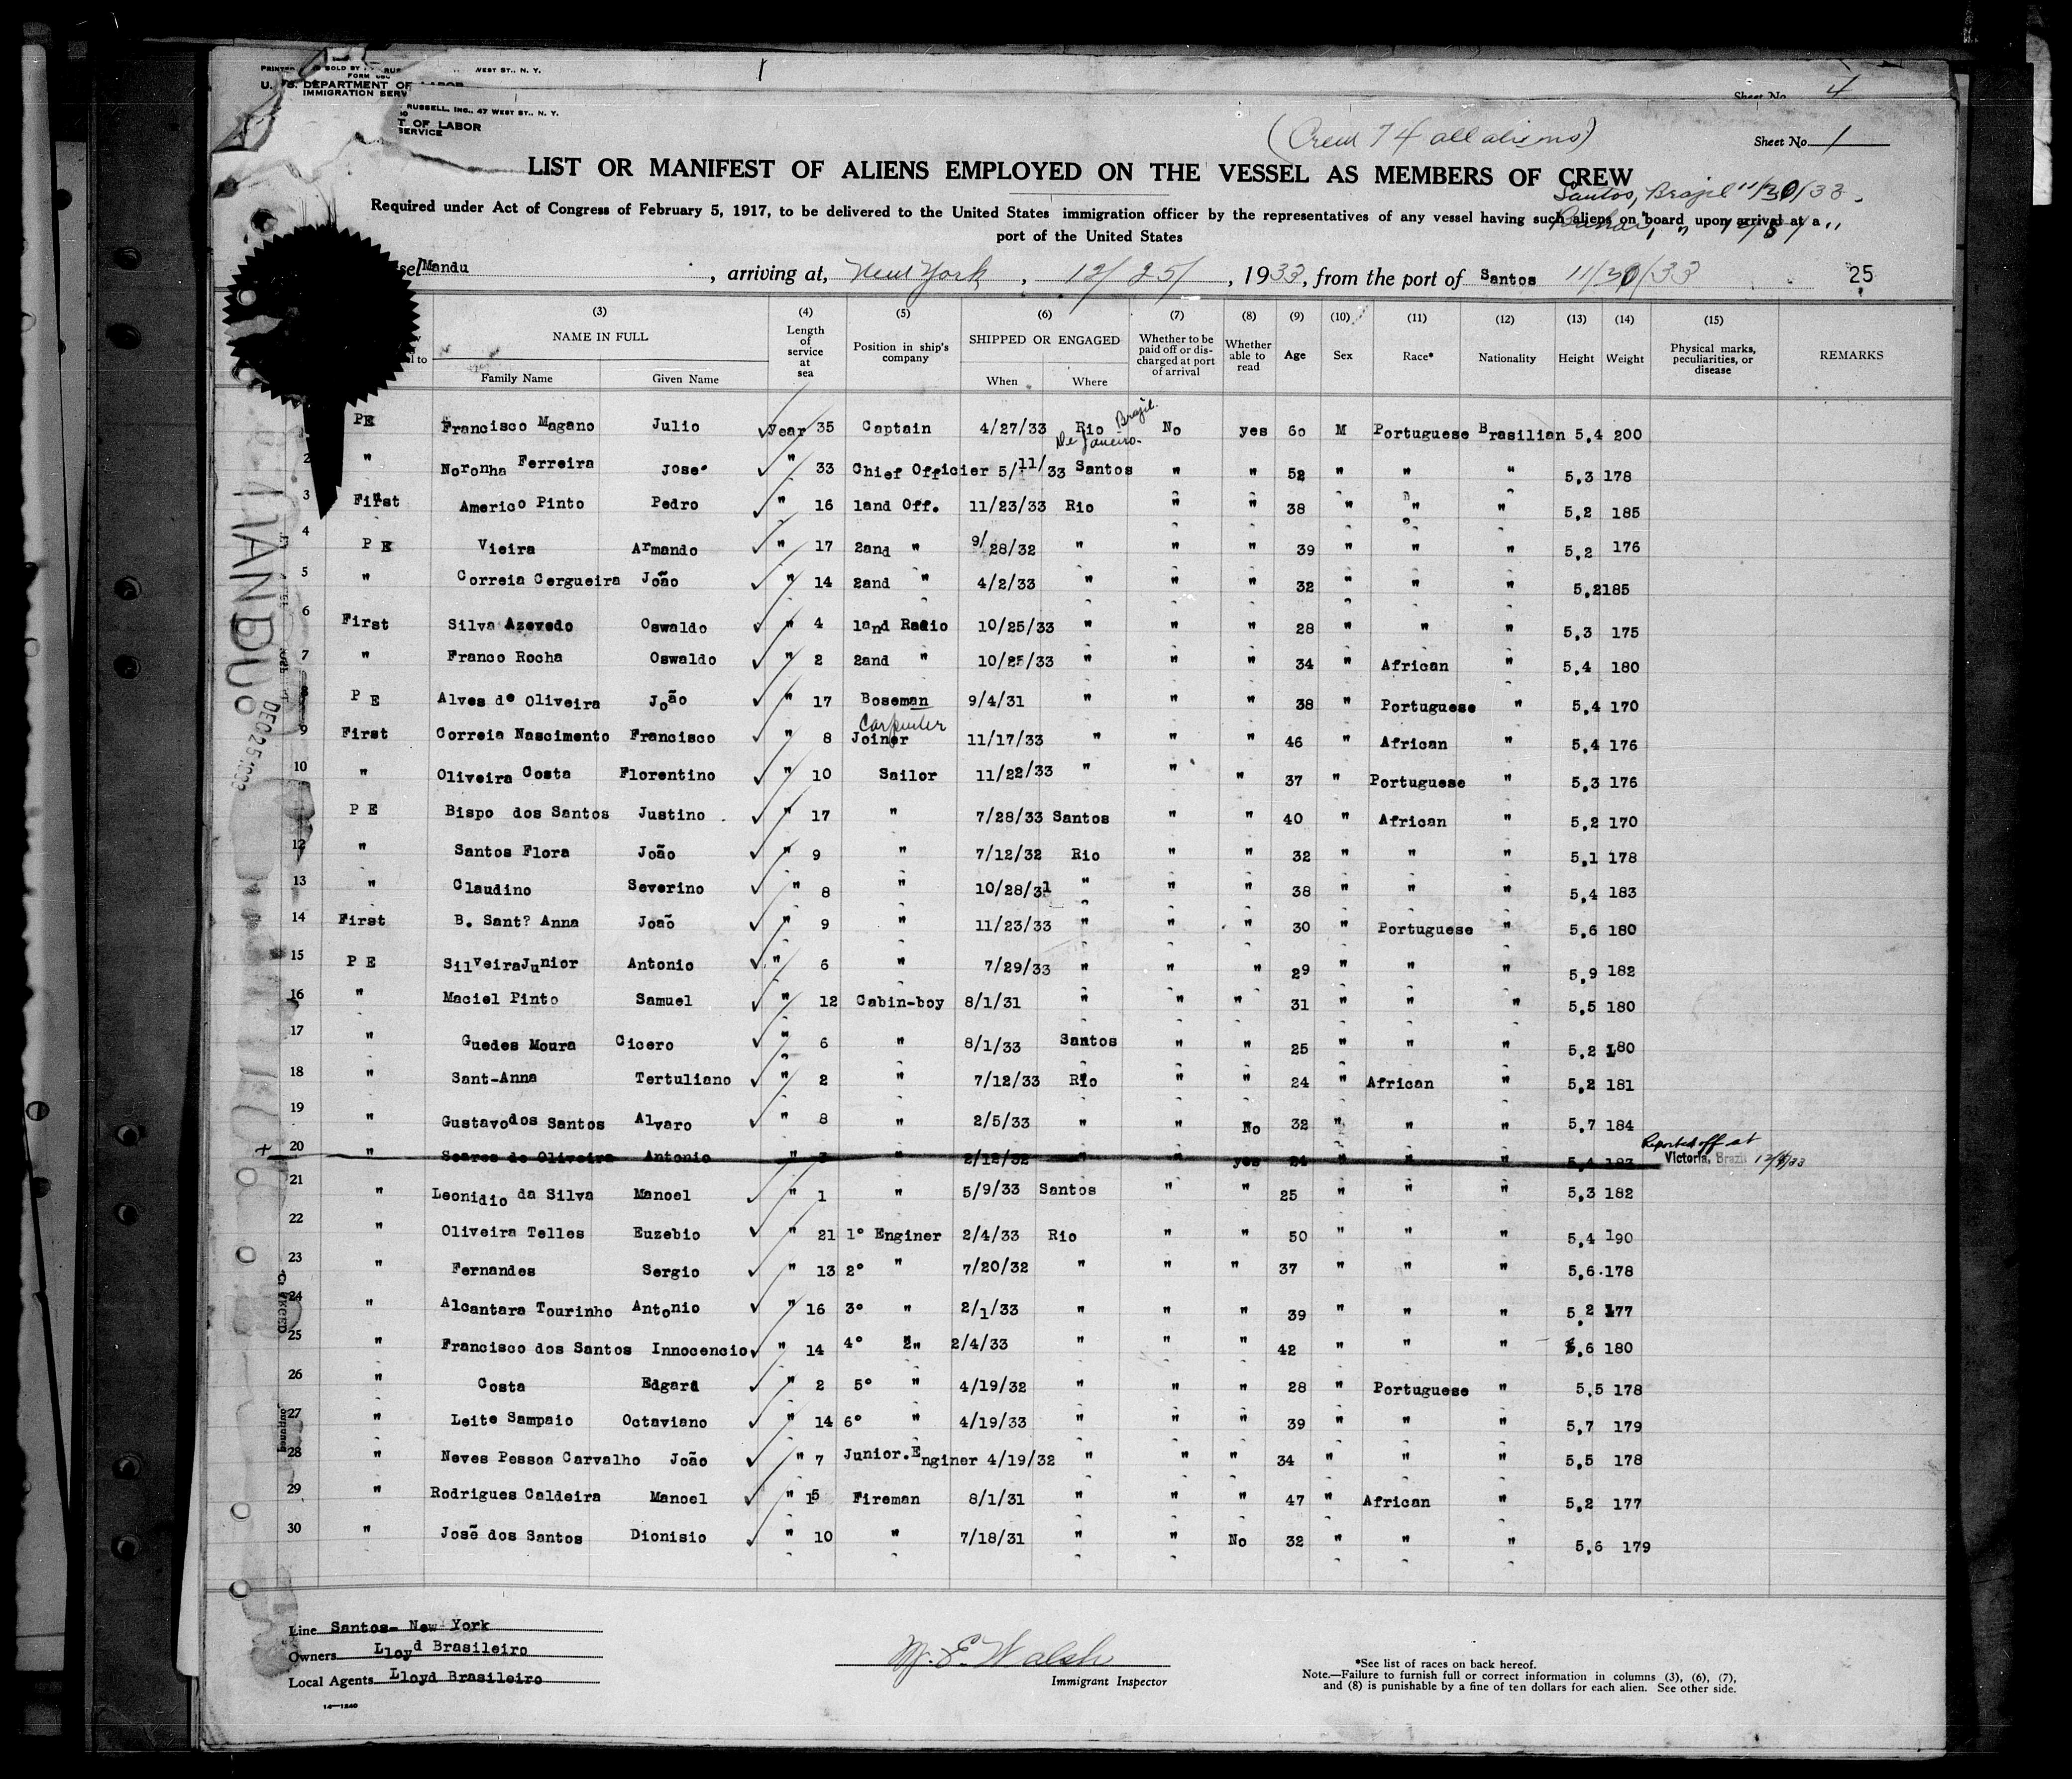 WEST ST., N. Y.
U. S. DEPARTMENT OF LABOR
IMMIGRATION SERV
Sheet No. 4
RUSSELL, INC., 47 WEST ST., N. Y.
T OF LABOR
SERVICE
(Crew 74 all aliens)
Sheet No. 1
LIST OR MANIFEST OF ALIENS EMPLOYED ON THE VESSEL AS MEMBERS OF CREW
Santos, Brazil 11/30/33.
Required under Act of Congress of February 5, 1917, to be delivered to the United States immigration officer by the representatives of any vessel having such aliens on board upon arrival at a
port of the United States
sel Mandu , arriving at, New York , 12/25/ , 1933, from the port of Santos 11/30/33 25
(3) (4) (5) (6) (7) (8) (9) (10) (11) (12) (13) (14) (15)
NAME IN FULL Family Name Given Name Length of service at sea Position in ship's company SHIPPED OR ENGAGED When Where Whether to be paid off or discharged at port of arrival Whether able to read Age Sex Race* Nationality Height Weight Physical marks, peculiarities, or disease REMARKS
PE Francisco Magano Julio year 35 Captain 4/27/33 Rio De Janeiro. Brazil. No yes 60 M Portuguese Brasilian 5,4 200
2 " Noronha Ferreira Jose " 33 Chief Officier 5/11/33 Santos " " 52 " " " 5,3 178
3 First Americo Pinto Pedro " 16 1and Off. 11/23/33 Rio " " 38 " " " 5,2 185
4 P E Vieira Armando " 17 2and " 9/28/32 " " " 39 " " " 5,2 176
5 " Correia Cergueira João " 14 2and " 4/2/33 " " " 32 " " " 5,2 185
6 First Silva Azevedo Oswaldo " 4 1and Radio 10/25/33 " " " 28 " " " 5,3 175
7 " Franco Rocha Oswaldo " 2 2and " 10/25/33 " " " 34 " African " 5,4 180
8 P E Alves de Oliveira João " 17 Boseman 9/4/31 " " " 38 " Portuguese " 5,4 170
9 First Correia Nascimento Francisco " 8 Carpenter Joiner 11/17/33 " " " 46 " African " 5,4 176
10 " Oliveira Costa Florentino " 10 Sailor 11/22/33 " " " 37 " Portuguese " 5,3 176
P E Bispo dos Santos Justino " 17 " 7/28/33 Santos " " 40 " African " 5,2 170
12 " Santos Flora João " 9 " 7/12/32 Rio " " 32 " " " 5,1 178
13 " Claudino Severino " 8 " 10/28/31 " " " 38 " " " 5,4 183
14 First B. Sant? Anna João " 9 " 11/23/33 " " " 30 " Portuguese " 5,6 180
15 P E Silveira Junior Antonio " 6 " 7/29/33 " " " 29 " " " 5,9 182
16 " Maciel Pinto Samuel " 12 Cabin-boy 8/1/31 " " " 31 " " " 5,5 180
17 " Guedes Moura Cicero " 6 " 8/1/33 Santos " " 25 " " " 5,2 180
18 " Sant-Anna Tertuliano " 2 " 7/12/33 Rio " " 24 " African " 5,2 181
19 " Gustavo dos Santos Alvaro " 8 " 2/5/33 " " No 32 " " " 5,7 184
20 " Soares de Oliveira Antonio " " 2/12/32 " " yes 24 " " " 5,4 183 Reported off at Victoria, Brazil
21 " Leonidio da Silva Manoel " 1 " 5/9/33 Santos " " 25 " " " 5,3 182
22 " Oliveira Telles Euzebio " 21 1° Enginer 2/4/33 Rio " " 50 " " " 5,4 190
23 " Fernandes Sergio " 13 2° " 7/20/32 " " " 37 " " " 5,6 178
24 " Alcantara Tourinho Antonio " 16 3° " 2/1/33 " " " 39 " " " 5,2 177
25 " Francisco dos Santos Innocencio " 14 4° " 2/4/33 " " " 42 " " " 5,6 180
26 " Costa Edgard " 2 5° " 4/19/32 " " " 28 " Portuguese " 5,5 178
27 " Leite Sampaio Octaviano " 14 6° " 4/19/33 " " " 39 " " " 5,7 179
28 " Neves Pessoa Carvalho João " 7 Junior.Enginer 4/19/32 " " " 34 " " " 5,5 178
29 " Rodrigues Caldeira Manoel " 15 Fireman 8/1/31 " " " 47 " African " 5,2 177
30 " José dos Santos Dionisio " 10 " 7/18/31 " " No 32 " " " 5,6 179
MANDU
DEC 25 1933
Line Santos- New York
Owners Lloyd Brasileiro
Local Agents Lloyd Brasileiro
14—1240
M. E. Walsh
Immigrant Inspector
*See list of races on back hereof.
Note.—Failure to furnish full or correct information in columns (3), (6), (7),
and (8) is punishable by a fine of ten dollars for each alien. See other side.